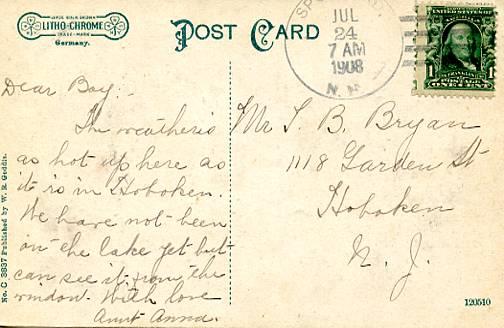 LEIPZIG BERLIN DRESDEN
LITHO-CHROME
TRADE-MARK
Germany.
POST CARD
SP
JUL
24
7 AM
1908
N.
FRANKLIN
1 ONE CENT 1
Dear Boy:-
The weather is
as hot up here as
it is in Hoboken.
We have not been
on the lake yet but
can see it from the
window. With love
Aunt Anna.
Mr T. B. Bryan
1118 Garden St
Hoboken
N. J.
No. C 3837 Published by W. R. Geddis.
120510